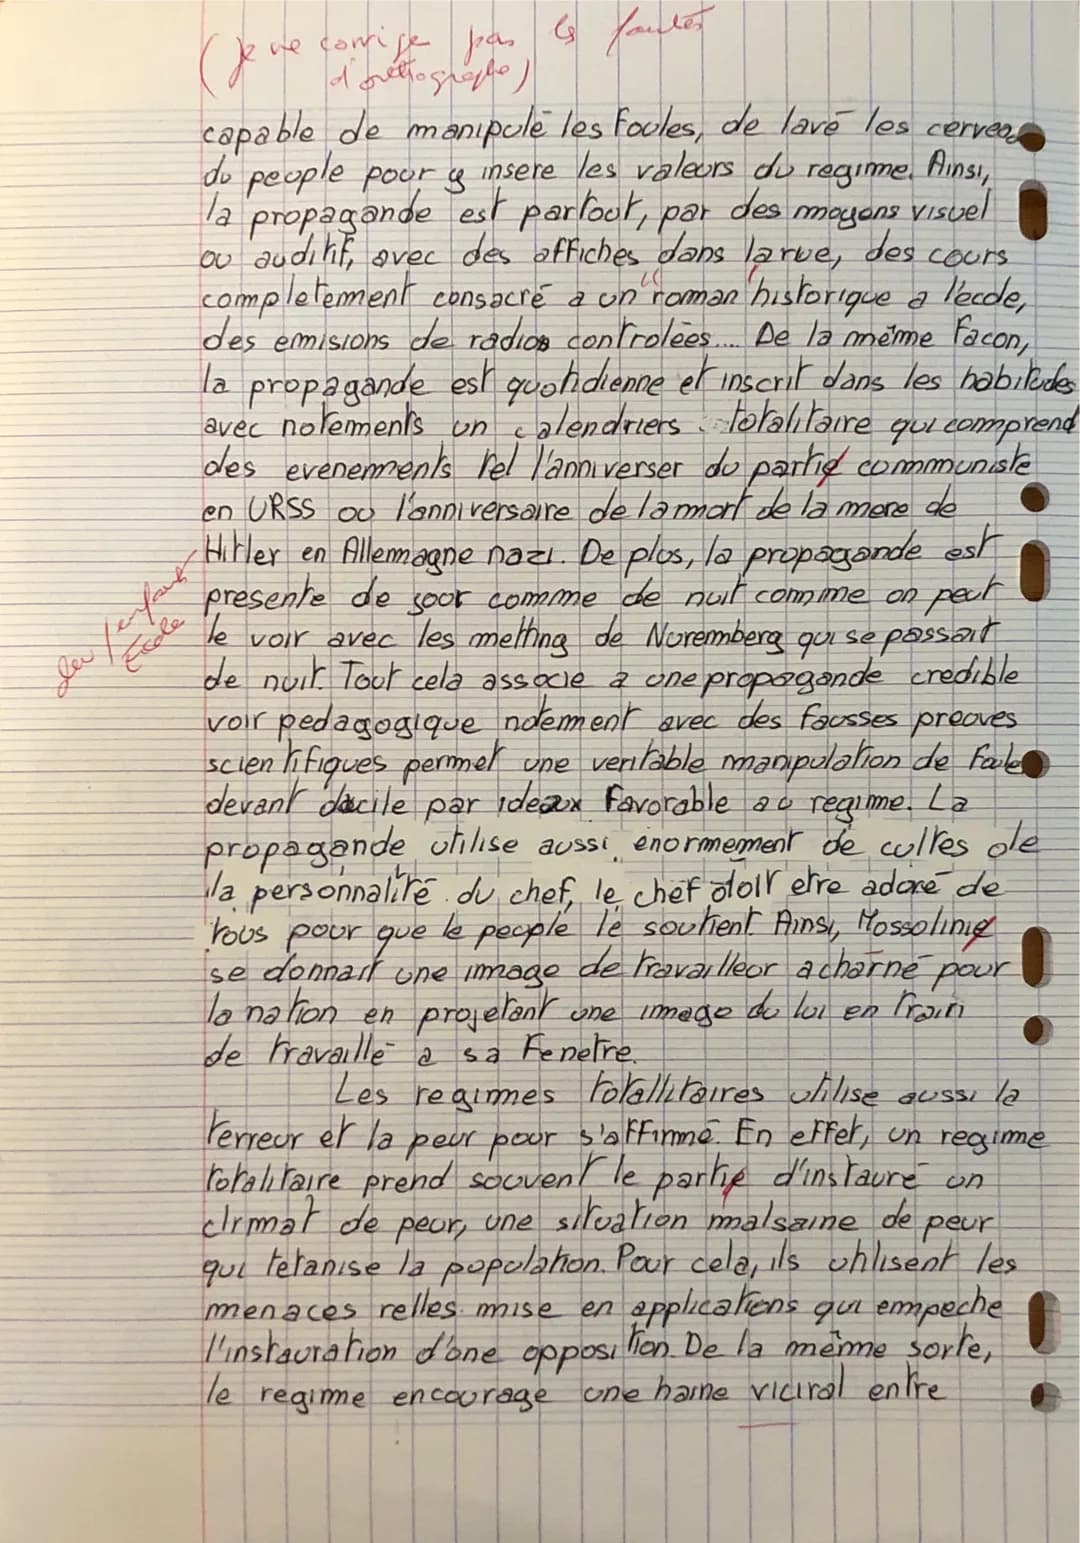 (je ne corrige pas les fautes
d'orthographe)
capable de manipulé les foules, de lavé les cervea
du peuple pour y insere les valeurs du regime. Ainsi,
la propagande est partout, par des moyens visuel
ou auditif, avec des affiches dans la rue, des cours
completement consacré a un "roman" historique a l'ecole,
des emisions de radios controlées... De la même facon,
la propagande est quotidienne et inscrit dans les habitudes
avec notements un calendriers totalitaire qui comprend
des evenements tel l'anniverser du partie communiste
en URSS ou l'anniversaire de la mort de la mere de
Hitler en Allemagne nazi. De plus, la propagande est
presente de jour comme de nuit comme on peut
les/enfants
Ecole
le voir avec les metting de Nuremberg qui se passait
de nuit. Tout cela associe a une propagande credible
voir pedagogique notement avec des fausses preuves
scientifiques permet une veritable manipulation de
devant docile par ideaux favorable au regime. La
propagande utilise aussi enormement de cultes de
la personnalité du chef, le chef doit etre adoré de
tous pour que le peuple le soutient. Ainsi, Mossolinie
se donnait une image de travailleur acharné pour
la nation en projetant une image du lui en train
de travaillé a sa Fenetre.
Les regimes totallitaires utilise aussi la
terreur et la peur pour s'affirmé. En effet, un regime
totalitaire prend souvent le partie d'instauré un
clrmat de peur, une situation malsaine de peur
qui tetanise la population. Pour cela, ils utilisent les
menaces relles mise en applications qui empeche
l'instauration d'une opposition. De la même sorte,
le regime encourage une haine viciral entre